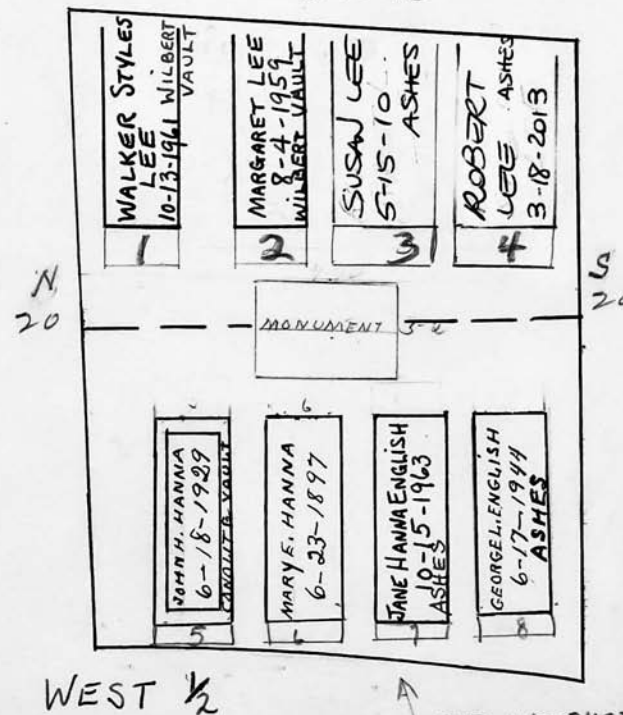 WALKER STYLES
LEE
10-13-1961 WILBERT
VAULT
MARGARET LEE
8-4-1959
WILBERT VAULT
SUSAN LEE
5-15-10
ASHES
ROBERT
LEE ASHES
3-18-2013
1
2
3
4
N
20
S
MONUMENT
JOHN H. HANNA
6-18-1929
VAULT
6
MARY E. HANNA
6-23-1897
JANE HANNA ENGLISH
10-15-1963
ASHES
GEORGE L. ENGLISH
6-17-1944
ASHES
5
6
7
8
WEST 1/2